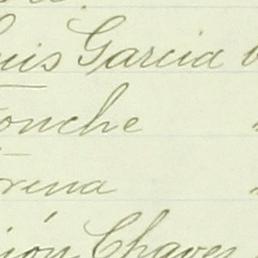 uis Garcia
onche "
rena "
ión Chaves